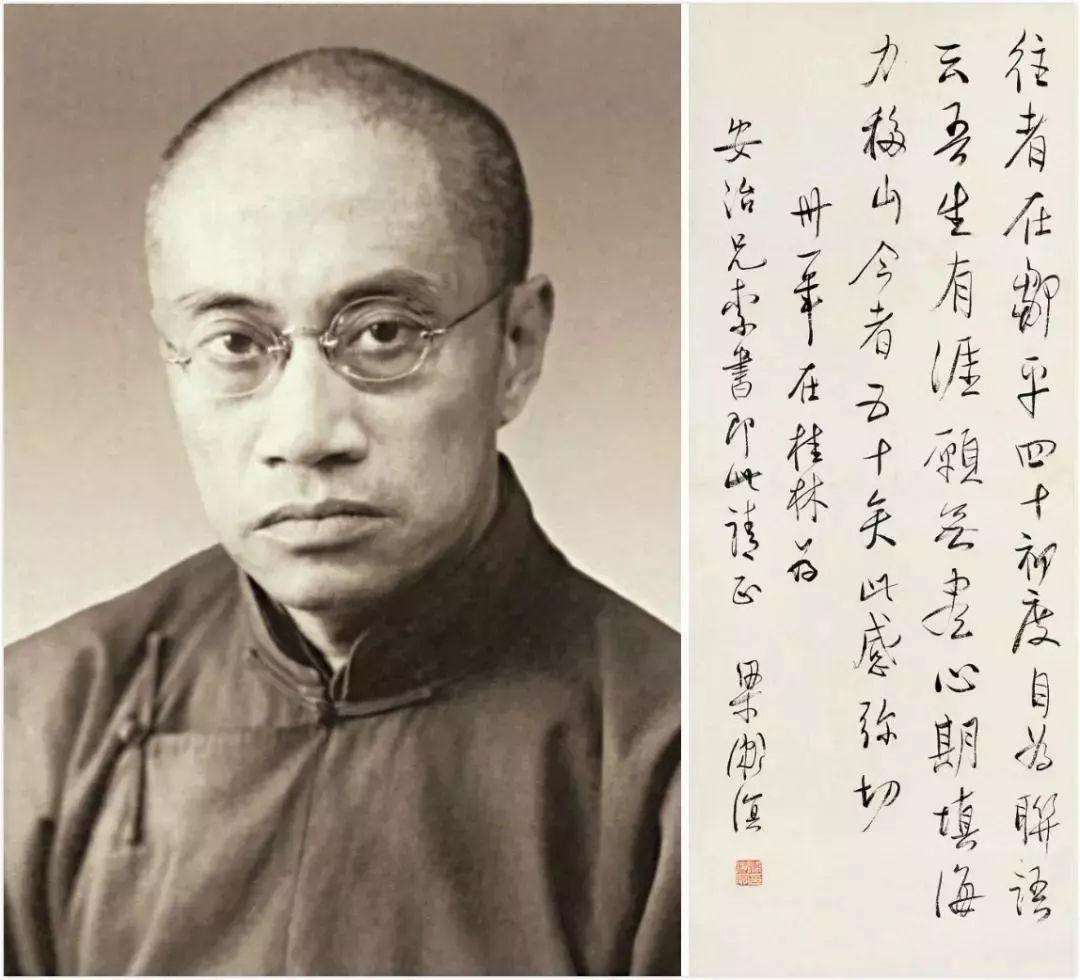 往者在鄒平四十初度自为聯語
云吾生有涯願无盡心期填海
力移山今者五十矣此感弥切
卅一年在桂林为
安治兄索書即此請正 梁漱溟